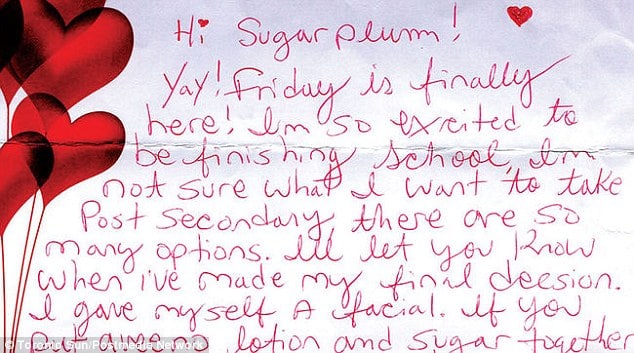 Hi Sugarplum!
Yay! Friday is finally
here! Im so excited to
be finishing school, Im
not sure what I want to take
Post Secondary there are so
many options. Ill let you know
when i've made my final decsion.
I gave myself A facial. If you
lotion and sugar together
© Toronto Sun/Postmedia Network